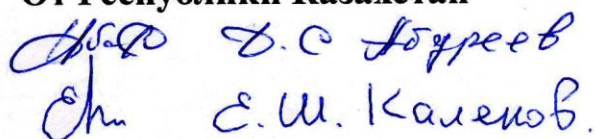 От Республики Казахстан
Д.С Абуреев
Е.Ш. Каленов.